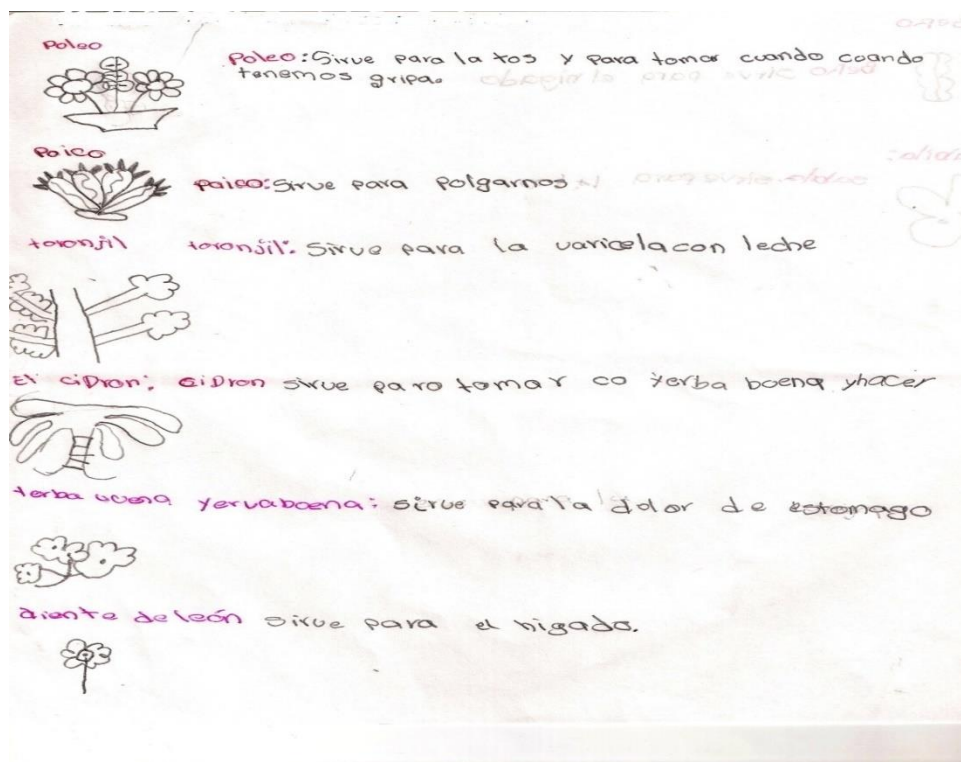 Poleo
Poleo: Sirve para la tos y para tomar cuando cuando
tenemos gripa.
Paico
Paico: Sirve para polgarnos
toronjil toronjil: Sirve para la varicela con leche
El ciDron: ciDron sirve paro tomar co yerba boena y hacer
yerba buena yervaboena: sirve para la dolor de estomago
diente de león sirve para el higado.